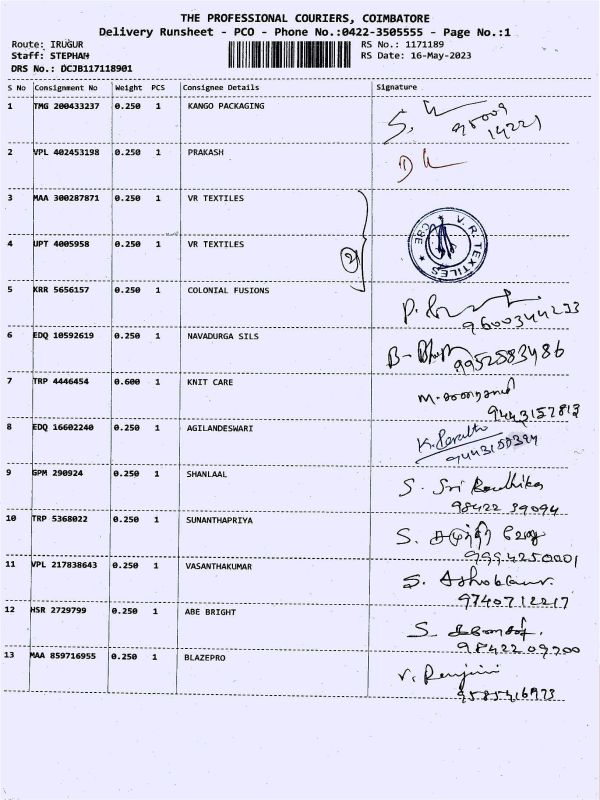 THE PROFESSIONAL COURIERS, COIMBATORE
Delivery Runsheet - PCO - Phone No.:0422-3505555 - Page No.:1
Route: IRUGUR RS No.: 1171189
Staff: STEPHAN RS Date: 16-May-2023
DRS No.: DCJB117118901
S No Consignment No Weight PCS Consignee Details Signature
1 TMG 200433237 0.250 1 KANGO PACKAGING
2 VPL 402453198 0.250 1 PRAKASH
3 MAA 300287871 0.250 1 VR TEXTILES
4 UPT 4005958 0.250 1 VR TEXTILES
V.R. TEXTILES ★ CBE ★
5 KRR 5656157 0.250 1 COLONIAL FUSIONS
9600344233
6 EDQ 10592619 0.250 1 NAVADURGA SILS
9952583486
7 TRP 4446454 0.600 1 KNIT CARE
9443157813
8 EDQ 16602240 0.250 1 AGILANDESWARI
9 GPM 290924 0.250 1 SHANLAAL S. Sri
98422 39094
10 TRP 5368022 0.250 1 SUNANTHAPRIYA
9994250001
11 VPL 217838643 0.250 1 VASANTHAKUMAR
9740712217
12 HSR 2729799 0.250 1 ABE BRIGHT
98422 09200
13 MAA 859716955 0.250 1 BLAZEPRO
9585416973